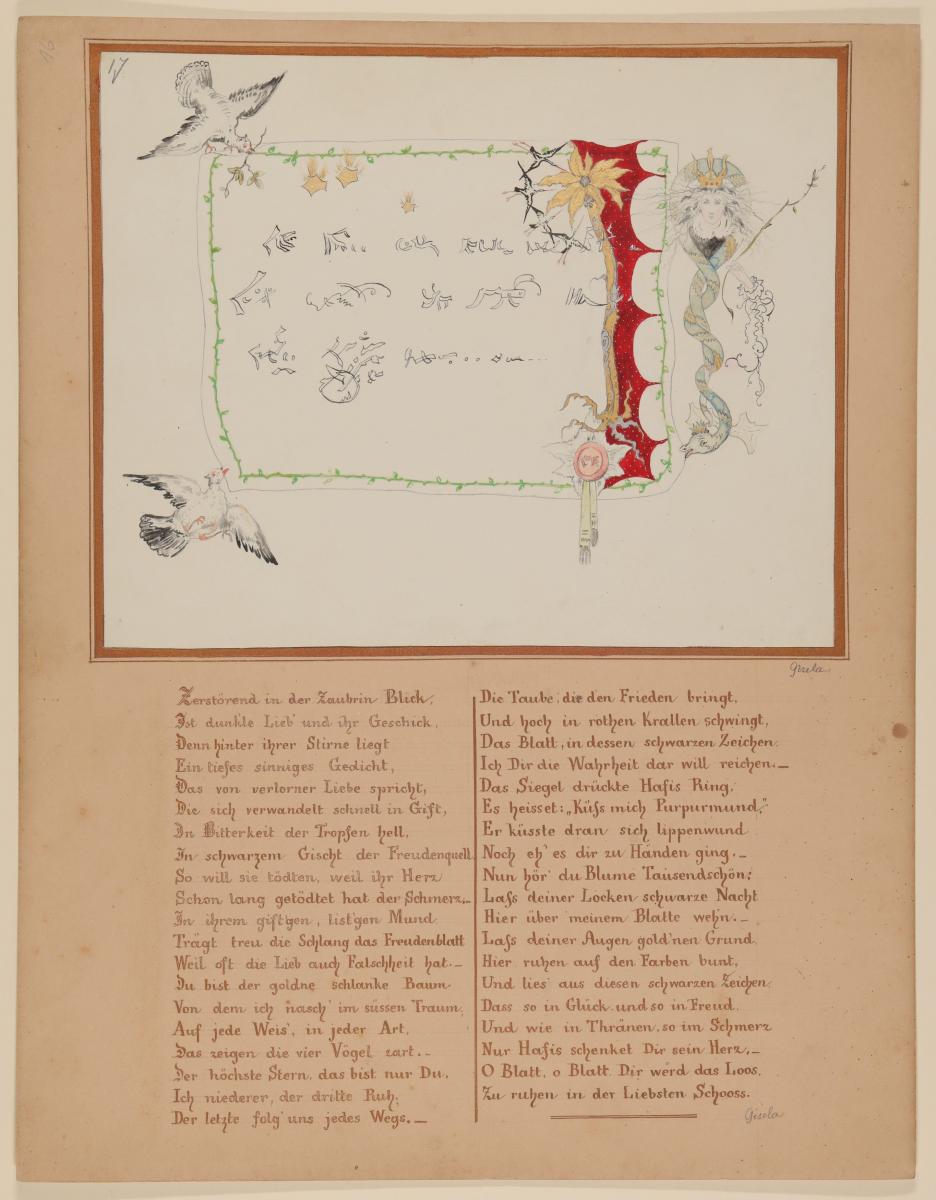 16
17
Gisela
Zerstörend in der Zaubrin Blick,
Ist dunkle Lieb' und ihr Geschick,
Denn hinter ihrer Stirne liegt
Ein tiefes sinniges Gedicht,
Das von verlorner Liebe spricht,
Die sich verwandelt schnell in Gift,
In Bitterkeit der Tropfen hell,
In schwarzem Gischt der Freudenquell.
So will sie tödten, weil ihr Herz
Schon lang getödtet hat der Schmerz._
In ihrem gift'gen, list'gen Mund
Trägt treu die Schlang das Freudenblatt
Weil oft die Lieb auch Falschheit hat._
Du bist der goldne schlanke Baum
Von dem ich nasch' im süssen Traum,
Auf jede Weis', in jeder Art,
Das zeigen die vier Vögel zart._
Der höchste Stern, das bist nur Du,
Ich niederer, der dritte Ruh,
Der letzte folg' uns jedes Wegs._
Die Taube, die den Frieden bringt,
Und hoch in rothen Krallen schwingt,
Das Blatt, in dessen schwarzen Zeichen
Ich Dir die Wahrheit dar will reichen._
Das Siegel drückte Hafis Ring,
Es heisset: „Küſs mich Purpurmund,"
Er küsste dran sich lippenwund
Noch eh' es dir zu Handen ging._
Nun hör' du Blume Tausendschön:
Laſs deiner Locken schwarze Nacht
Hier über meinem Blatte wehn._
Laſs deiner Augen gold'nen Grund
Hier ruhen auf den Farben bunt,
Und lies' aus diesen schwarzen Zeichen
Dass so in Glück und so in Freud,
Und wie in Thränen, so im Schmerz
Nur Hafis schenket Dir sein Herz._
O Blatt, o Blatt Dir werd das Loos,
Zu ruhen in der Liebsten Schooss.
Gisela